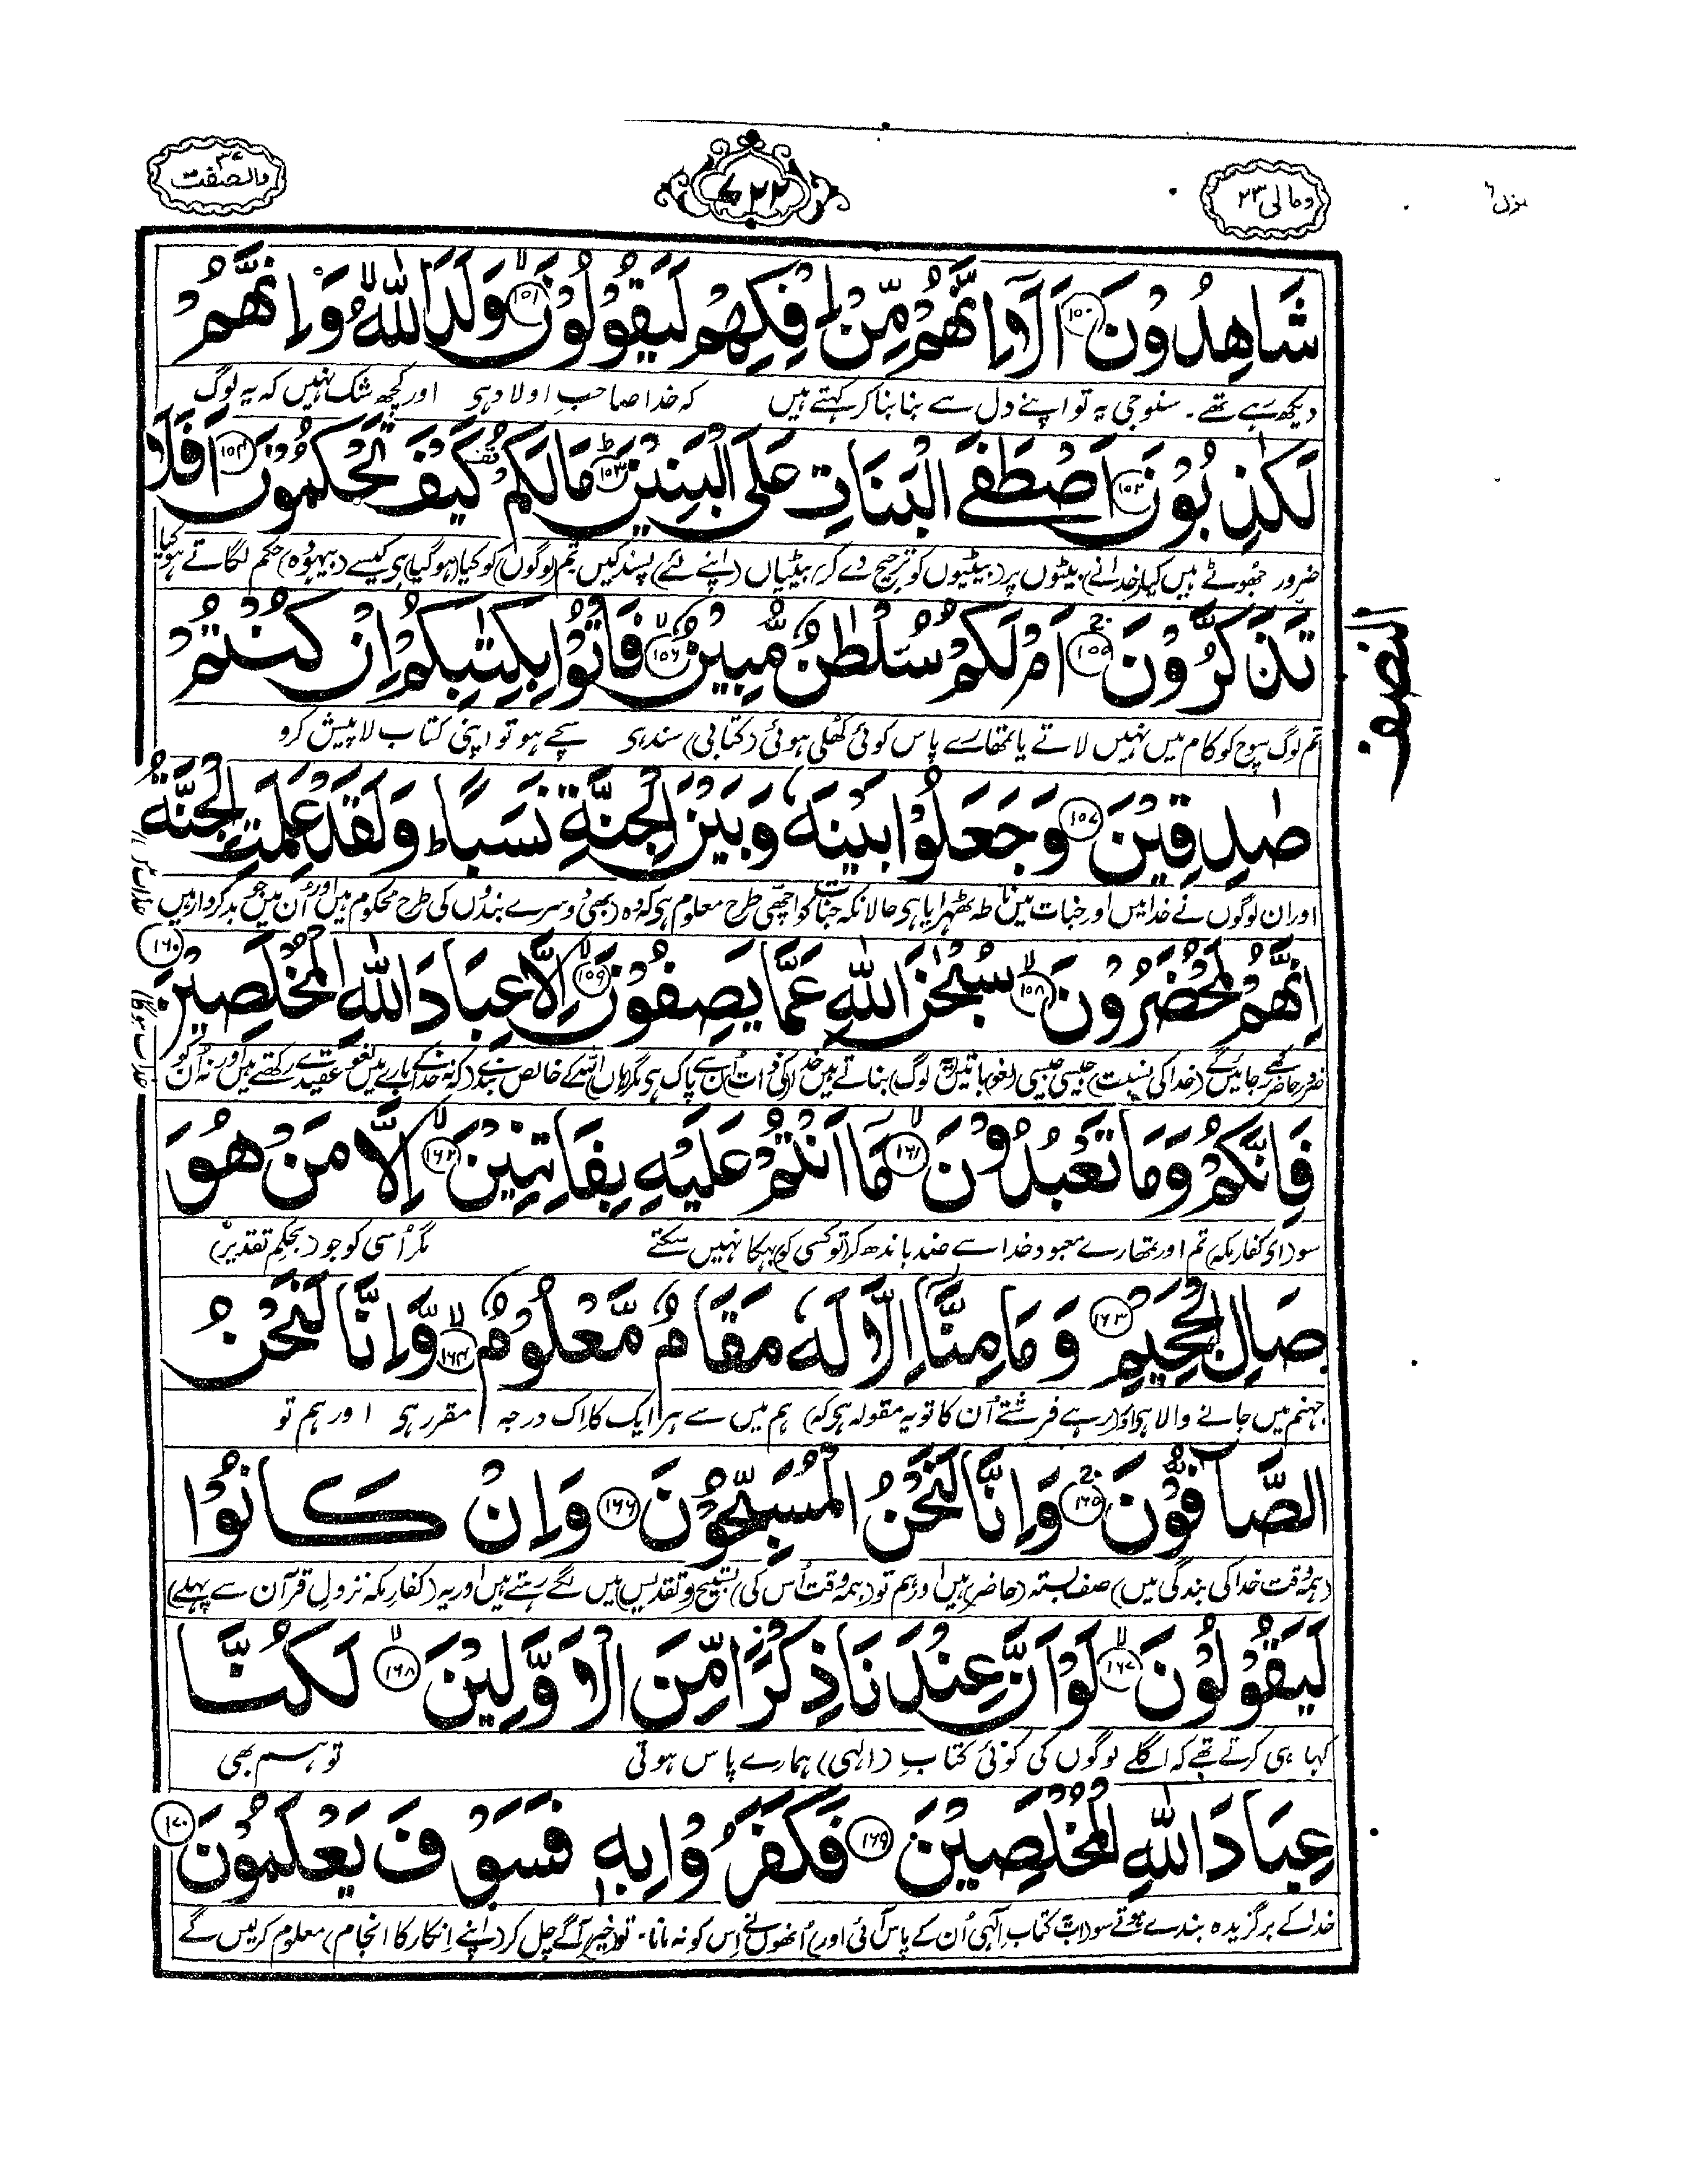 ومالی ۲۳
۷۲۲
والصفت ۳۷
شَاهِدُوْنَ ۝۱۵۰ اَلَاۤ اِنَّهُمْ مِّنْ اِفْكِهِمْ لَيَقُوْلُوْنَ ۝۱۵۱ۙ وَلَدَ اللّٰهُ ۙ وَاِنَّهُمْ
دیکھ رہے تھے۔ سنو جی یہ تو اپنے دل سے بنا بنا کر کہتے ہیں کہ خدا صاحبِ اولاد ہی اور کچھ شک نہیں کہ یہ لوگ
لَكٰذِبُوْنَ ۝۱۵۲ اَصْطَفَى الْبَنَاتِ عَلَى الْبَنِيْنَ ۝۱۵۳ؕ مَا لَكُمْ ۫ كَيْفَ تَحْكُمُوْنَ ۝۱۵۴ اَفَلَا
ضرور جھوٹے ہیں کیا (خدا نے) بیٹوں پر (بیٹیوں کو ترجیح دے کر) بیٹیاں (اپنے لئے) پسند کیں تم (لوگوں) کو کیا (ہو گیا) ہی کیسے (بیہودہ) حکم لگاتے ہو کیا
تَذَكَّرُوْنَ ۝۱۵۵ۚ اَمْ لَكُمْ سُلْطٰنٌ مُّبِيْنٌ ۝۱۵۶ۙ فَاْتُوْا بِكِتٰبِكُمْ اِنْ كُنْتُمْ
تم لوگ سوچ کو کام میں نہیں لاتے یا تمھارے پاس کوئی کھلی ہوئی (کتابی) سند ہی سچے ہو تو اپنی کتاب لا پیش کرو
النصف
صٰدِقِيْنَ ۝۱۵۷ وَجَعَلُوْا بَيْنَهٗ وَبَيْنَ الْجِنَّةِ نَسَبًا ؕ وَلَقَدْ عَلِمَتِ الْجِنَّةُ
اور ان لوگوں نے خدا میں اور جنات میں ناطہ ٹھہرایا ہی حالانکہ جنات کو اچھی طرح معلوم ہی کہ وہ (بھی دوسرے بندوں کی طرح محکوم ہیں اور اُن میں جو بدکردار ہیں
اِنَّهُمْ لَمُحْضَرُوْنَ ۝۱۵۸ۙ سُبْحٰنَ اللّٰهِ عَمَّا يَصِفُوْنَ ۝۱۵۹ۙ اِلَّا عِبَادَ اللّٰهِ الْمُخْلَصِيْنَ ۝۱۶۰
حاضر کئے جائیں گے (خدا کی نسبت) جیسی جیسی (لغو) باتیں (یہ لوگ) بناتے ہیں خدا کی ذات اُن سے پاک ہی مگر ہاں اللہ کے خالص بندے
فَاِنَّكُمْ وَمَا تَعْبُدُوْنَ ۝۱۶۱ۙ مَاۤ اَنْتُمْ عَلَيْهِ بِفَاتِنِيْنَ ۝۱۶۲ۙ اِلَّا مَنْ هُوَ
سو (ای کفارِ مکہ) تم اور تمھارے معبود خدا سے ضد باندھ کر (تو کسی کو) بہکا نہیں سکتے مگر اُسی کو جو (بحکمِ تقدیر)
صَالِ الْجَحِيْمِ ۝۱۶۳ وَمَا مِنَّاۤ اِلَّا لَهٗ مَقَامٌ مَّعْلُوْمٌ ۝۱۶۴ۙ وَّاِنَّا لَنَحْنُ
جہنم میں جانے والا ہی اور (رہے فرشتے اُن کا تو یہ مقولہ ہی کہ) ہم میں سے ہر ایک کا اِک درجہ مقرر ہی اور ہم تو
الصَّآفُّوْنَ ۝۱۶۵ۚ وَاِنَّا لَنَحْنُ الْمُسَبِّحُوْنَ ۝۱۶۶ وَاِنْ كَانُوْا
(ہمہ وقت خدا کی بندگی میں) صف بستہ (حاضر) ہیں اور ہم تو (ہمہ وقت اُس کی) تسبیح (و تقدیس) میں لگے رہتے ہیں اور یہ (کفارِ مکہ نزولِ قرآن سے پہلے)
لَيَقُوْلُوْنَ ۝۱۶۷ۙ لَوْ اَنَّ عِنْدَنَا ذِكْرًا مِّنَ الْاَوَّلِيْنَ ۝۱۶۸ۙ لَكُنَّا
کہا ہی کرتے تھے کہ اگلے لوگوں کی کوئی کتابِ (الٰہی) ہمارے پاس ہوتی تو ہم بھی
عِبَادَ اللّٰهِ الْمُخْلَصِيْنَ ۝۱۶۹ فَكَفَرُوْا بِهٖ فَسَوْفَ يَعْلَمُوْنَ ۝۱۷۰
خدا کے برگزیدہ بندے ہوتے سو (اب کتابِ الٰہی اُن کے پاس آئی اور) اُنھوں نے اِس کو نہ مانا۔ تو (خیر) آگے چل کر (اپنے اِنکار کا انجام) معلوم کر لیں گے